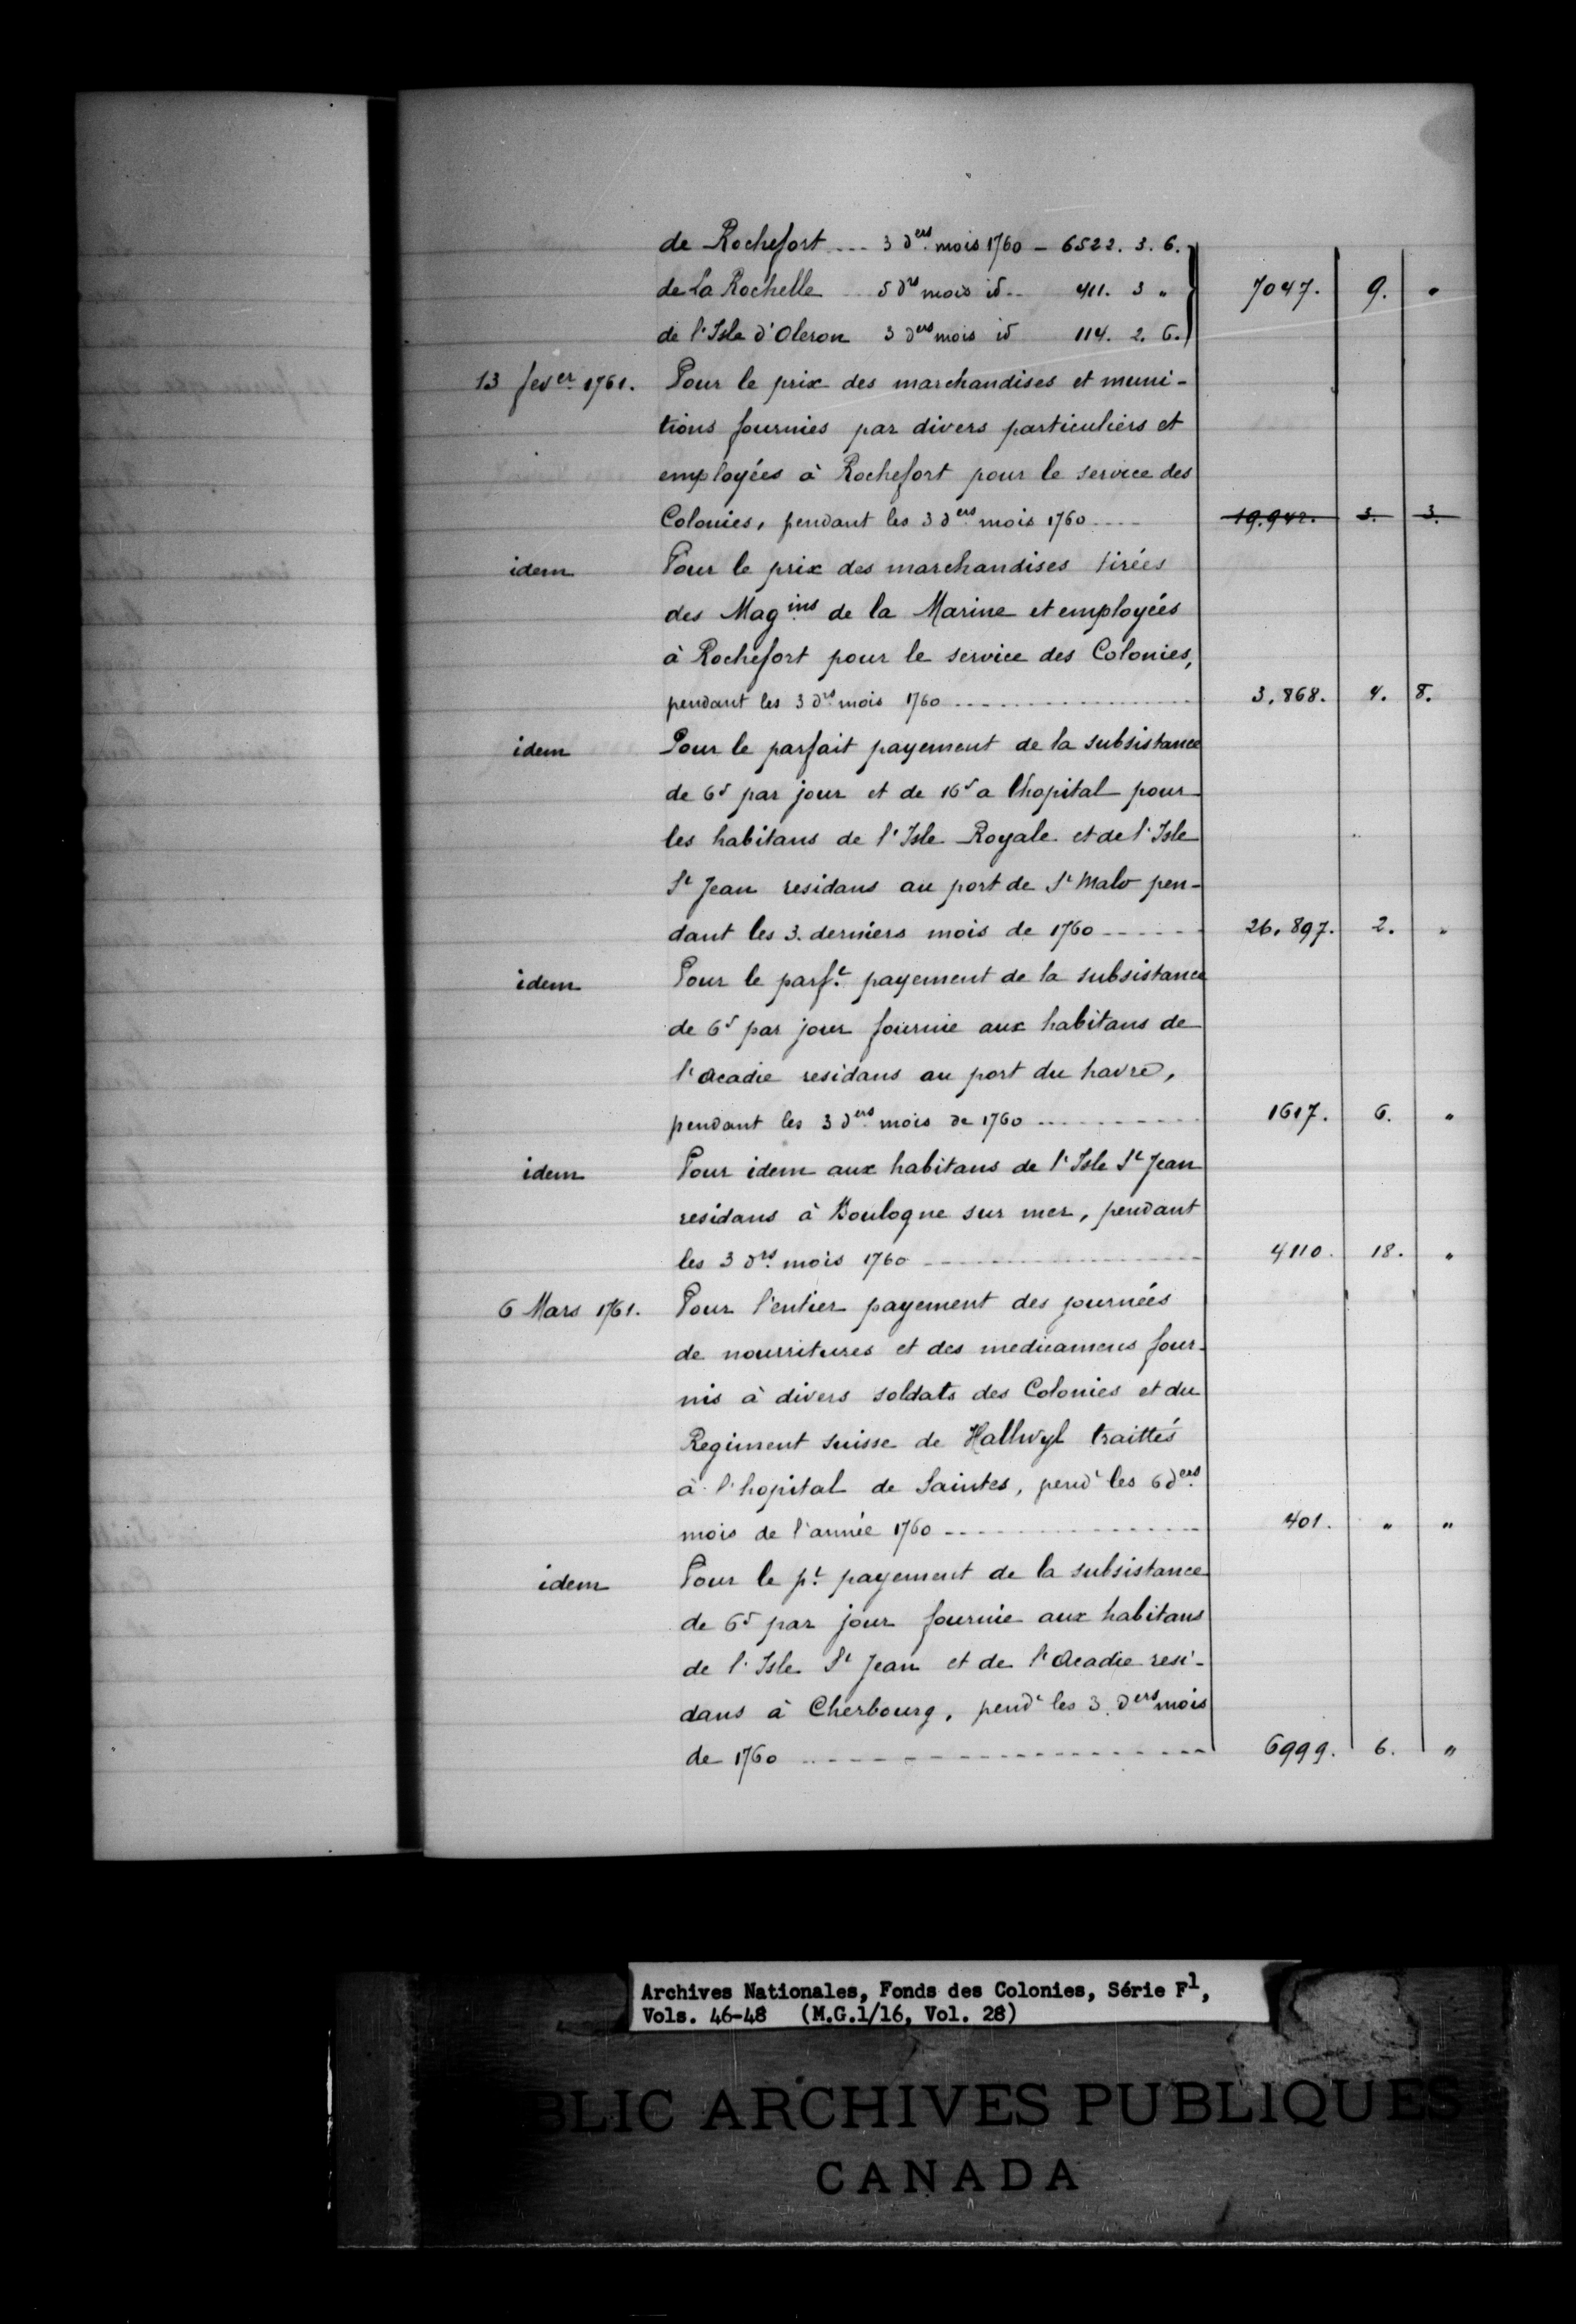 de Rochefort ... 3 ders mois 1760 - 6522. 3. 6.
de La Rochelle ... 5 drs mois id .. 411. 3 " 7047. 9. "
de l'Isle d'Oleron 3 ders mois id 114. 2. 6.
13 fever 1761. Pour le prix des marchandises et muni-
tions fournies par divers particuliers et
employées à Rochefort pour le service des
Colonies, pendant les 3 ders mois 1760 .... 19.942. 3. 3.
idem Pour le prix des marchandises tirées
des Magins de la Marine et employées
à Rochefort pour le service des Colonies,
pendant les 3 drs mois 1760 ........ 3.868. 4. 8.
idem Pour le parfait payement de la subsistance
de 6s par jour et de 16s a l'hopital pour
les habitans de l'Isle Royale et de l'Isle
St Jean residans au port de St Malo pen-
dant les 3. derniers mois de 1760 ------ 26.897. 2. "
idem Pour le parft payement de la subsistance
de 6s par jour fournie aux habitans de
l'Acadie residans au port du havre,
pendant les 3 ders mois de 1760 -------- 1617. 6. "
idem Pour idem aux habitans de l'Isle St Jean
residans à Boulogne sur mer, pendant
les 3 drs mois 1760 -------- 4110. 18. "
6 Mars 1761. Pour l'entier payement des journées
de nourritures et des medicamens four-
nis à divers soldats des Colonies et du
Regiment suisse de Hallwyl traittés
à l'hopital de Saintes, pendt les 6 ders
mois de l'année 1760 -------- 401. " "
idem Pour le pt payement de la subsistance
de 6s par jour fournie aux habitans
de l'Isle St Jean et de l'Acadie resi-
dans à Cherbourg, pendt les 3. ders mois
de 1760 -------- 6999. 6. "
Archives Nationales, Fonds des Colonies, Série F1,
Vols. 46-48 (M.G.1/16, Vol. 28)
BLIC ARCHIVES PUBLIQUES
CANADA